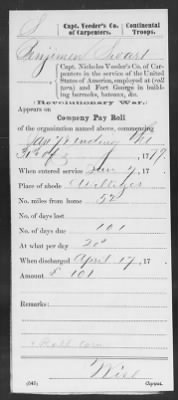 S | Capt. Veeder's Co. of Carpenters. | Continental Troops.
Benjamin
Capt. Nicholas Veeder's Co. of Carpenters in the service of the United States of America, employed at
and Fort George in building barracks, bateaux, &c.
(Revolutionary War.)
Appears on
Company Pay Roll
of the organization named above, commencing
ending the
31st of 1779.
When entered service Jan 7, 17
Place of abode
No. miles from home 50
No. of days lost
No. of days due 101
At what per day 20s
When discharged April 17, 17
Amount £ 101
Remarks:
Roll
(545) Copyist.